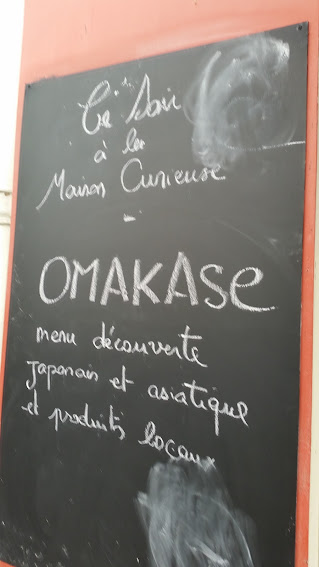 Ce Soir
à la
Maison Curieuse
-
OMAKASE
menu découverte
japonais et asiatique
et produits locaux